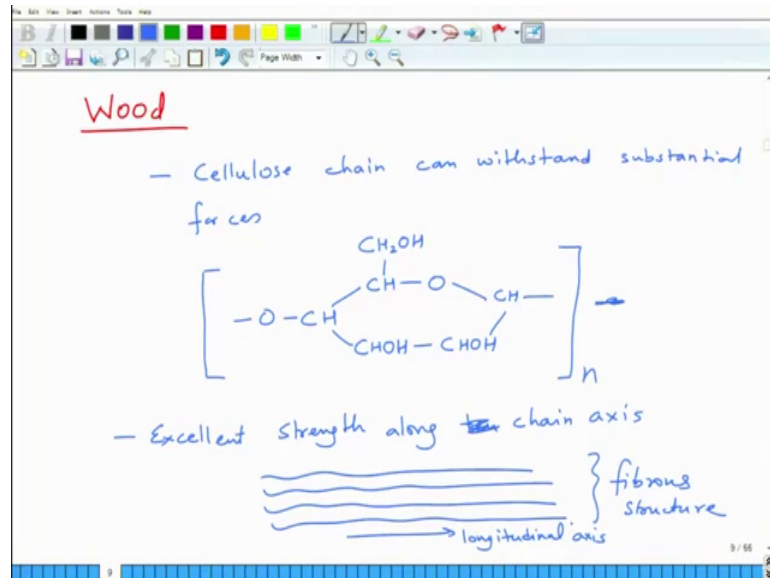 File Edit View Insert Actions Tools Help
B I
Page Width
Wood
— Cellulose chain can withstand substantial
forces
CH₂OH
CH — O
— O — CH
CH —
CHOH — CHOH
n
— Excellent strength along chain axis
fibrous
structure
longitudinal axis
9 / 66
9